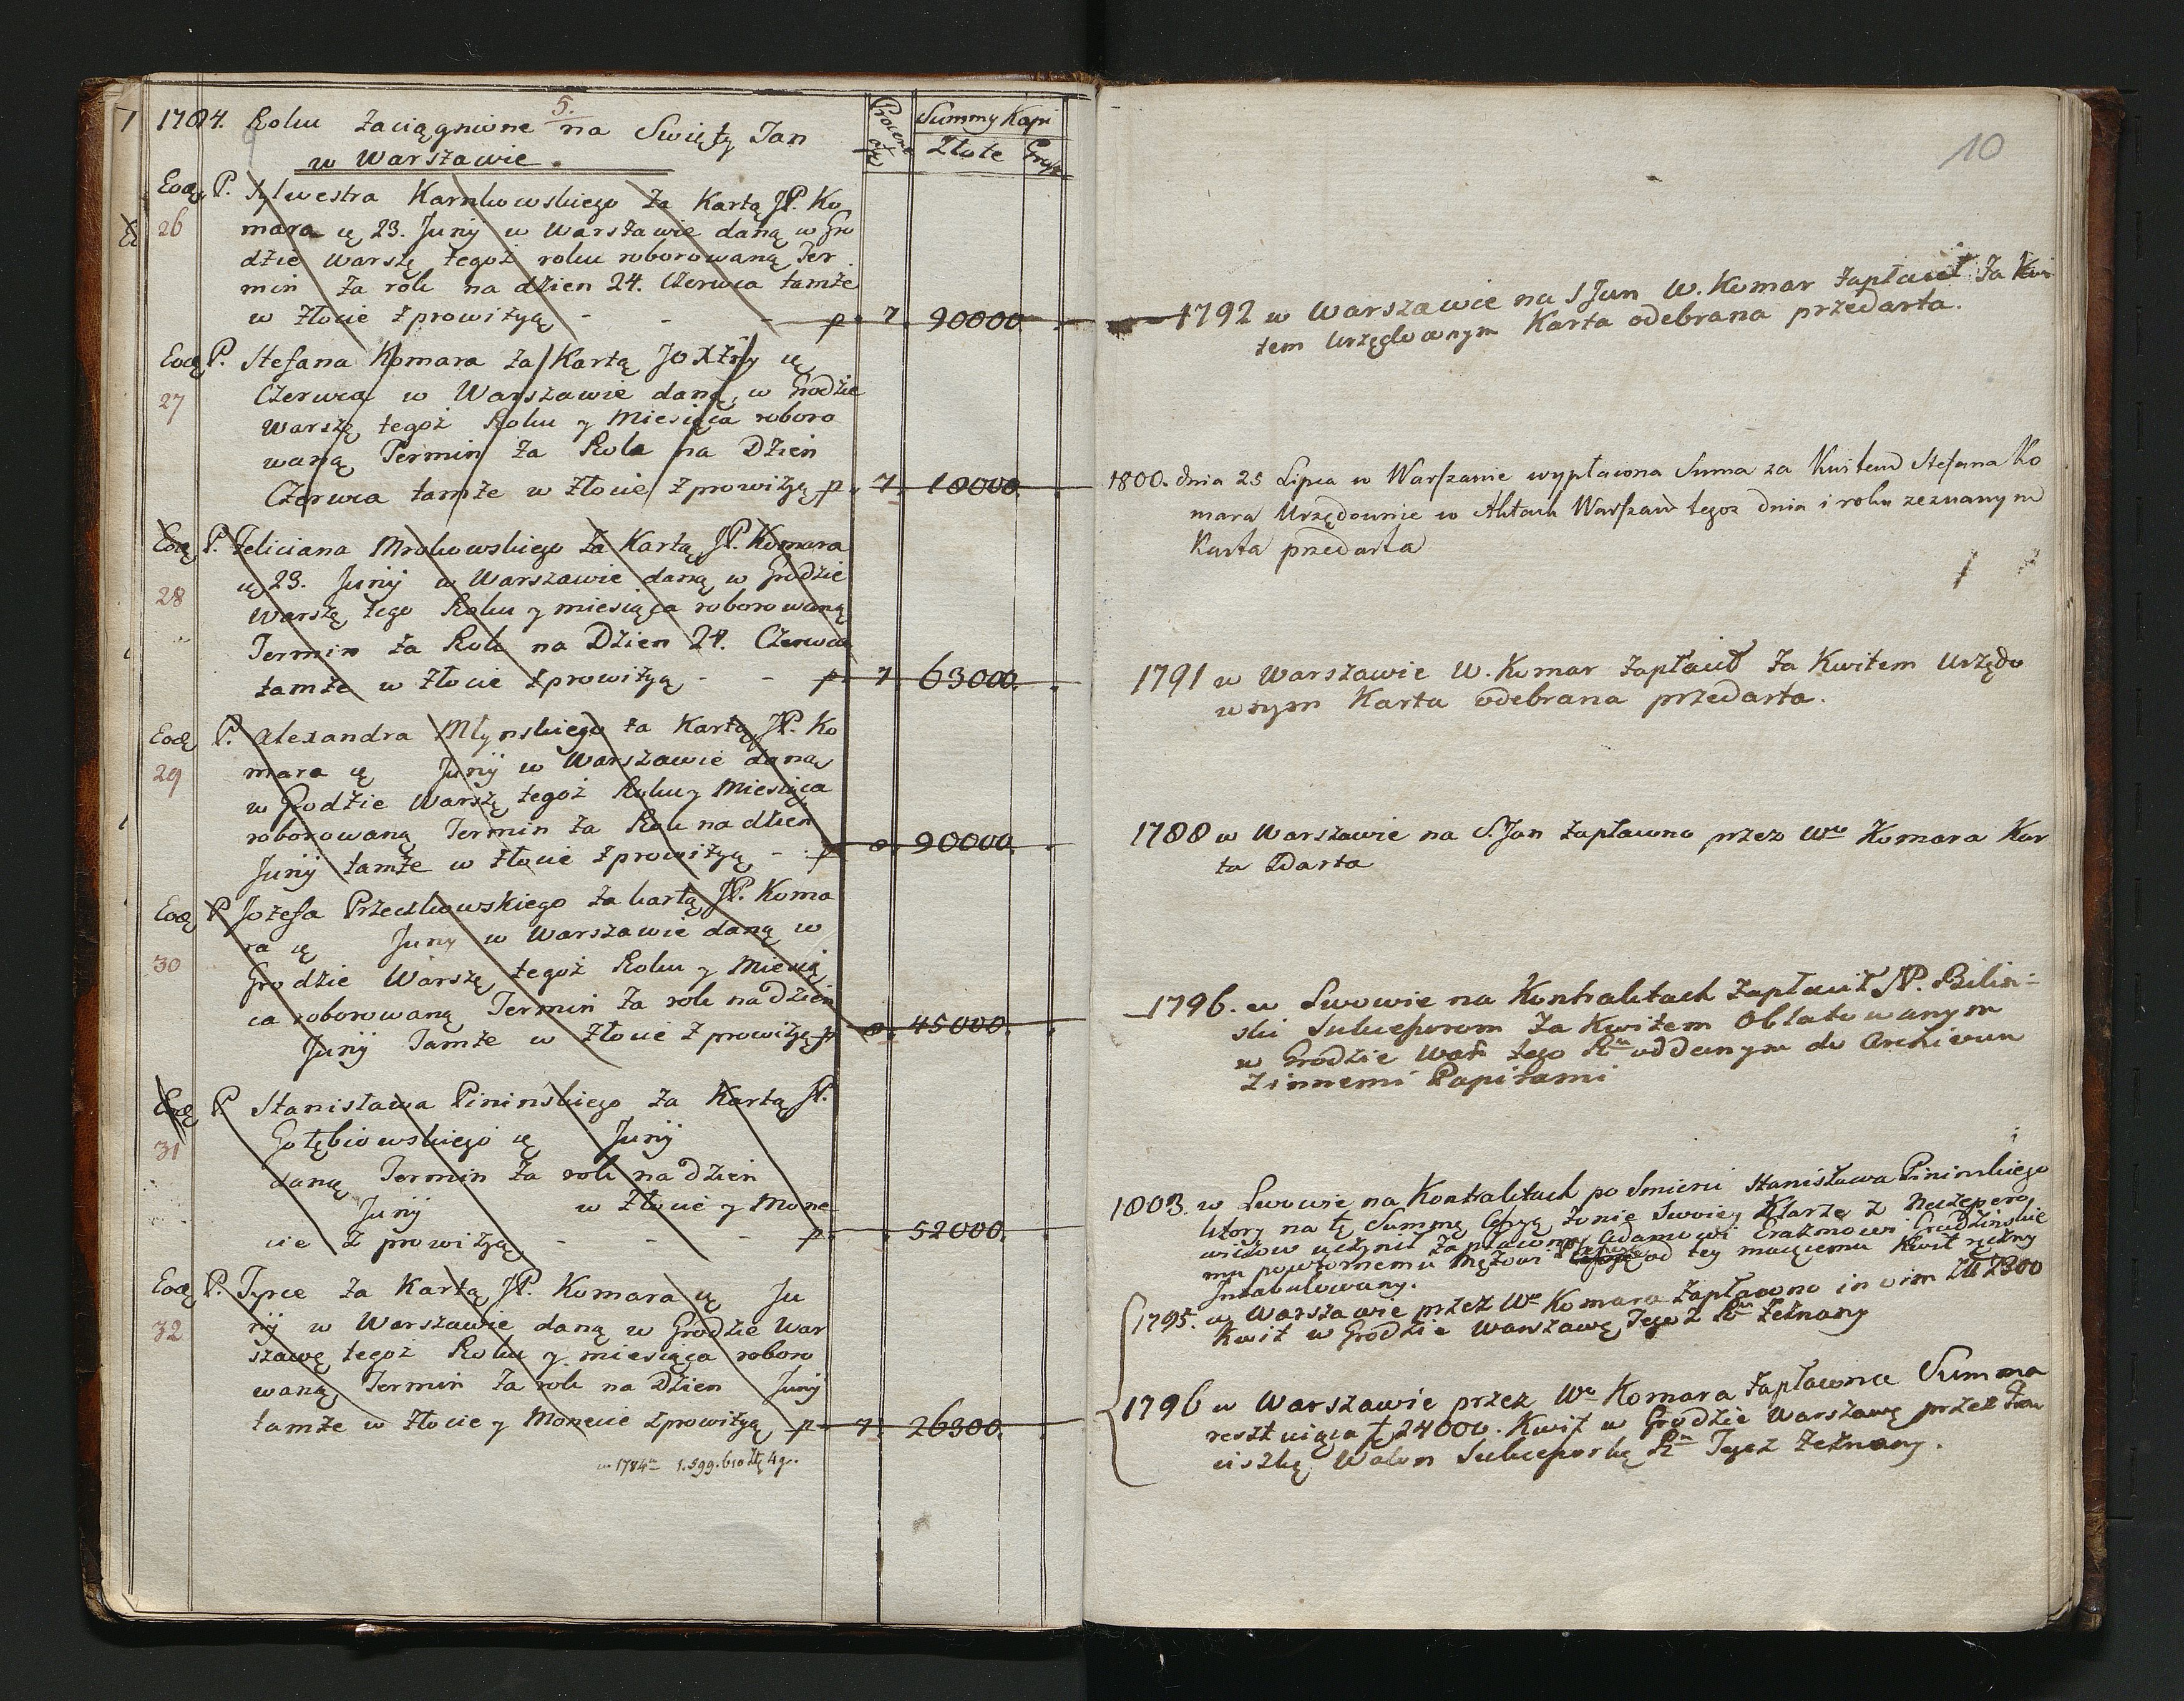 5.
1784. Roku zaciągnione na Swięty Jan
w Warszawie.
Procenta
Summy Kapi
Złote Grosze
Eodę P. Sylwestra Karnkowskiego za Kartą JP. Ko
26 mara ę 23. Junÿ w Warszawie daną w Gro
dzie Warszę tegoż roku roborowaną Ter
min za rok na dzien 24. Czerwca tamże
w złocie z prowizyą - - - p. 7. 90000
Eodę P. Stefana Komara za Kartą ę
27 Czerwca w Warszawie daną, w Grodzie
Warszę tegoż Roku y Miesiąca roboro
waną Termin za Rok na Dzien
Czerwca tamże w złocie z prowizyą p. 7. 18000.
Eodę P. Feliciana Mrokowskiego za Kartą JP. Komara
28 ę 23. Junÿ w Warszawie daną w Grodzie
Warszę tego Roku y miesiąca roborowaną
Termin za Rok na Dzien 24. Czerwca
tamże w złocie z prowizyą - - p. 7. 63000.
Eodę P. Alexandra Młynskiego za Kartą JP. Ko
29 mara ę Junÿ w Warszawie daną
w Grodzie Warszę tegoż Roku y Miesiąca
roborowaną Termin za Rok na dzien
Junÿ tamże w złocie z prowizyą - p 8. 90000.
Eodę P Jozefa Przeczkowskiego za kartą JP. Koma
ra ę Juny w Warszawie daną w
30 Grodzie Warszę tegoż Roku y Miesią
ca roborowaną Termin za rok na Dzien
Junÿ Tamże w złocie z prowizyą p 8. 45000.
Eodę P Stanisława Pininskiego za Kartą JP.
31 Gołębiowskiego ę Junÿ
daną Termin za rok na Dzien
Junÿ w złocie y Mone
cie z prowizyą - - - p. 52000.
Eodę P. Tyrce za Kartą JP. Komara ę Ju
32 nÿ w Warszawie daną w Grodzie War
szawę tegoż Roku y miesiąca roboro
waną Termin za rok na Dzien Junÿ
tamże w złocie y Monecie z prowizyą p 7. 26300.
w 1784 1.599.610 złę 4 g.
10
1792 w Warszawie na S Jan W. Komar zapłacił za Kwi
tem Urzędownym Karta odebrana przedarta.
1800. dnia 25 Lipca w Warszawie wypłacona Suma za Kwitem Stefana Ko
mara Urzędownie w Aktach Warszaw tegoz dnia i roku zeznanym
Karta przedarta
1791 w Warszawie W. Komar zapłacił za Kwitem Urzędo
wnym Karta odebrana przedarta.
1788 w Warszawie na S. Jan zapłacono przez W Komara Kar
ta zdarta
1796. w Lwowie na Kontraktach zapłacił JP. Bilin-
ski Sukcessorom za Kwitem Oblatowanym
w Grodzie War tego Ru oddanym do Archivum
z innemi Papirami
1803. w Lwowie na Kontraktach po Smierci Stanisława Pininskiego
ktory na tę Summę Cessyą żonie Swoiey Klarze z
uczynił zapłacony Adamowi Erazmowi
mu powtornemu Mężowi od tey maiącemu Kwit ręczny
Intabulowany.
1795. w Warszawie przez W Komara zapłacono in vim Zll 2300
Kwit w Grodzie Warszawę Tegoż Ru zeznany
1796 w Warszawie przez W Komara zapłacona Summa
resztuiąca 24000. Kwit w Grodzie Warszawę przez Fran
ciszkę Sukcessorkę Ru Tegoz zeznany.